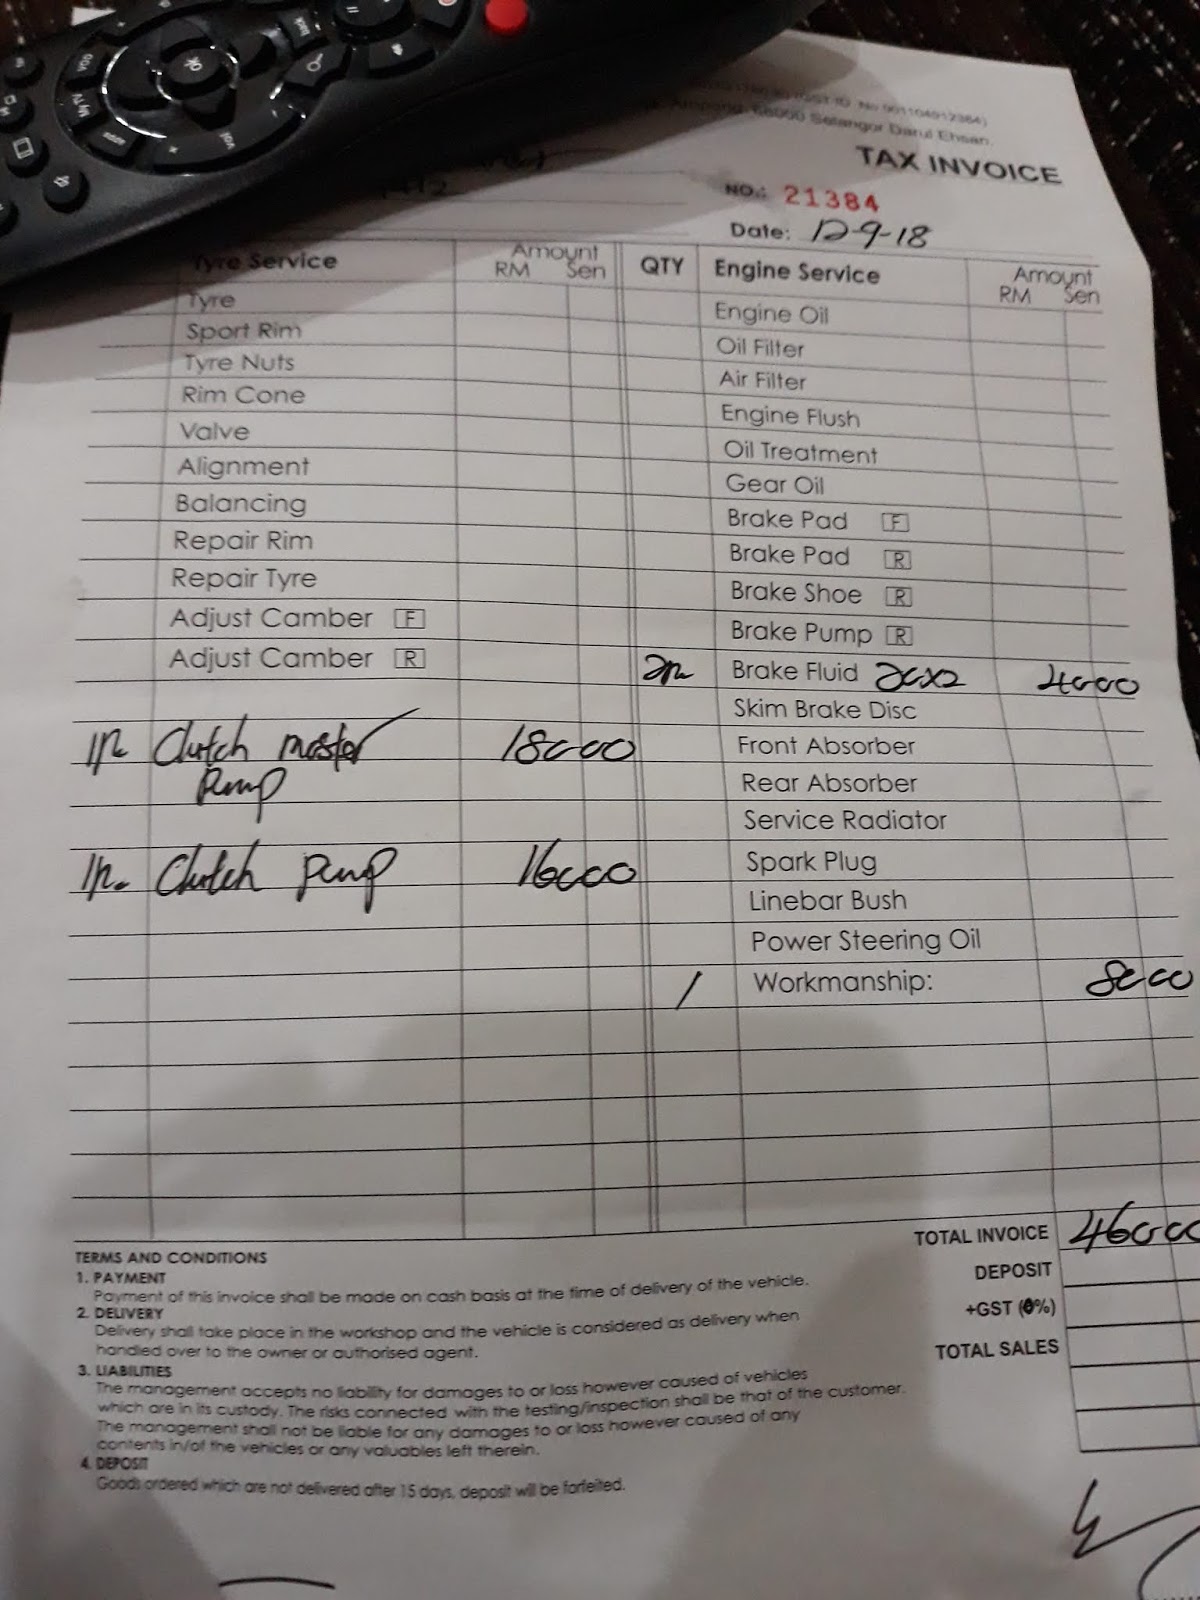 (GST ID No 001104912384)
Ampang, 68000 Selangor Darul Ehsan.
TAX INVOICE
NO.: 21384
Date: 12-9-18
Tyre Service Amount RM Sen
QTY Engine Service Amount RM Sen
Tyre
Engine Oil
Sport Rim
Oil Filter
Tyre Nuts
Air Filter
Rim Cone
Engine Flush
Valve
Oil Treatment
Alignment
Gear Oil
Balancing
Brake Pad F
Repair Rim
Brake Pad R
Repair Tyre
Brake Shoe R
Adjust Camber F
Brake Pump R
Adjust Camber R
Brake Fluid 20x2 4000
Skim Brake Disc
Clutch master 18000
Pump
Front Absorber
Rear Absorber
Service Radiator
Clutch Pump 16000
Spark Plug
Linebar Bush
Power Steering Oil
/ Workmanship: 8000
TOTAL INVOICE 46000
DEPOSIT
+GST (0%)
TOTAL SALES
TERMS AND CONDITIONS
1. PAYMENT
Payment of this invoice shall be made on cash basis at the time of delivery of the vehicle.
2. DELIVERY
Delivery shall take place in the workshop and the vehicle is considered as delivery when
handled over to the owner or authorised agent.
3. LIABILITIES
The management accepts no liability for damages to or loss however caused of vehicles
which are in its custody. The risks connected with the testing/inspection shall be that of the customer.
The management shall not be liable for any damages to or loss however caused of any
contents in/of the vehicles or any valuables left therein.
4. DEPOSIT
Goods ordered which are not delivered after 15 days, deposit will be forfeited.